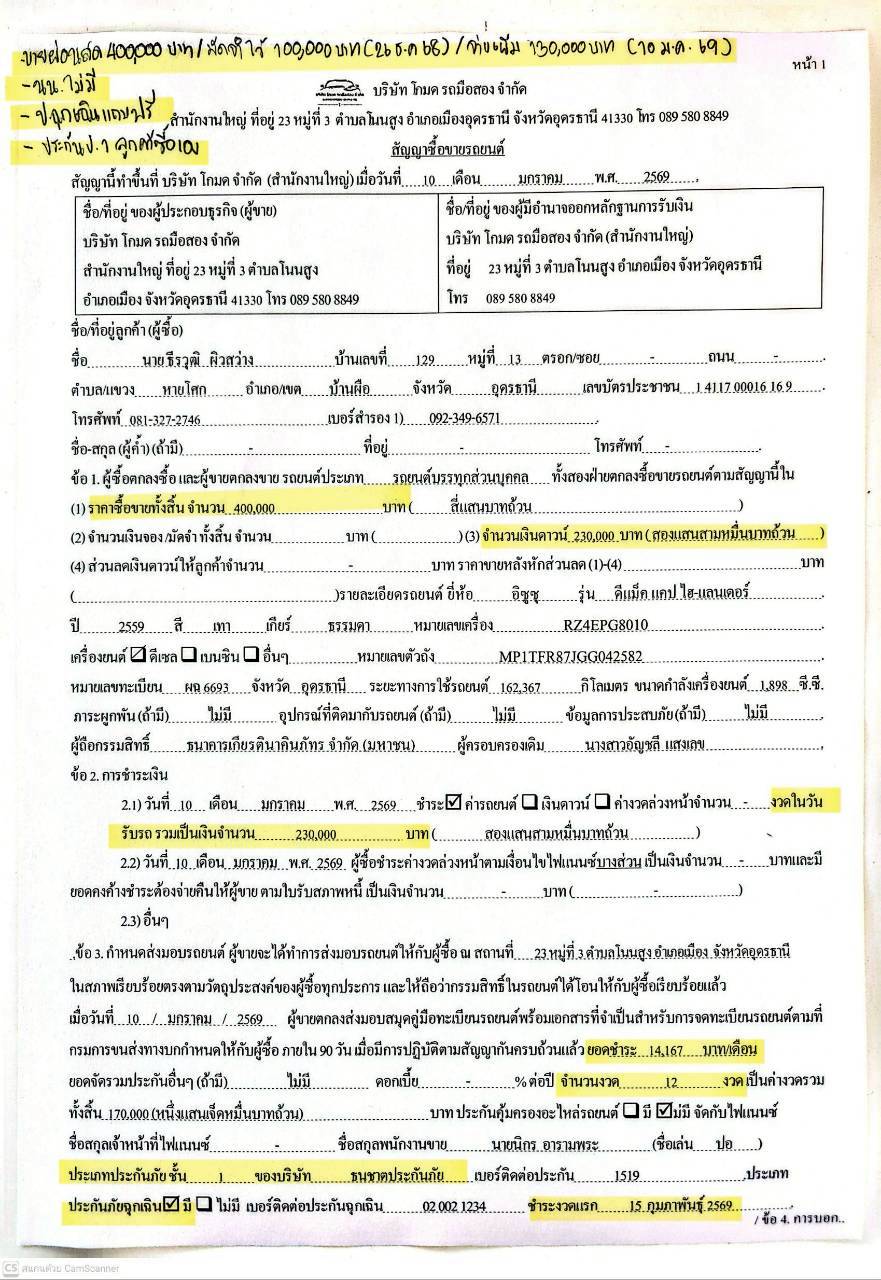 -ขายผ่อนสด 400,000 บาท / มัดจำไว้ 100,000 บาท (26 ธ.ค 68) / จ่ายเพิ่ม 130,000 บาท (10 ม.ค. 69)
- นน. ไม่มี
- ป.ฉุกเฉินแถมฟรี
- ประกัน ป.1 ลูกค้าซื้อเอง
หน้า 1
บริษัท โกมด รถมือสอง จำกัด
สำนักงานใหญ่ ที่อยู่ 23 หมู่ที่ 3 ตำบลโนนสูง อำเภอเมืองอุดรธานี จังหวัดอุดรธานี 41330 โทร 089 580 8849
สัญญาซื้อขายรถยนต์
สัญญานี้ทำขึ้นที่ บริษัท โกมด จำกัด (สำนักงานใหญ่) เมื่อวันที่ 10 เดือน มกราคม พ.ศ. 2569
ชื่อ/ที่อยู่ ของผู้ประกอบธุรกิจ (ผู้ขาย)
บริษัท โกมด รถมือสอง จำกัด
สำนักงานใหญ่ ที่อยู่ 23 หมู่ที่ 3 ตำบลโนนสูง
อำเภอเมือง จังหวัดอุดรธานี 41330 โทร 089 580 8849
ชื่อ/ที่อยู่ ของผู้มีอำนาจออกหลักฐานการรับเงิน
บริษัท โกมด รถมือสอง จำกัด (สำนักงานใหญ่)
ที่อยู่ 23 หมู่ที่ 3 ตำบลโนนสูง อำเภอเมือง จังหวัดอุดรธานี
โทร 089 580 8849
ชื่อ/ที่อยู่ลูกค้า (ผู้ซื้อ)
ชื่อ นายธีรวุฒิ ผิวสว่าง บ้านเลขที่ 129 หมู่ที่ 13 ตรอก/ซอย - ถนน -
ตำบล/แขวง หายโศก อำเภอ/เขต บ้านผือ จังหวัด อุดรธานี เลขบัตรประชาชน 1 4117 00016 16 9
โทรศัพท์ 081-327-2746 เบอร์สำรอง 1) 092-349-6571
ชื่อ-สกุล (ผู้ค้ำ) (ถ้ามี) - ที่อยู่ - โทรศัพท์ -
ข้อ 1. ผู้ซื้อตกลงซื้อ และผู้ขายตกลงขาย รถยนต์ประเภท รถยนต์บรรทุกส่วนบุคคล ทั้งสองฝ่ายตกลงซื้อขายรถยนต์ตามสัญญานี้ใน
(1) ราคาซื้อขายทั้งสิ้น จำนวน 400,000 บาท ( สี่แสนบาทถ้วน )
(2) จำนวนเงินจอง /มัดจำ ทั้งสิ้น จำนวน บาท ( ) (3) จำนวนเงินดาวน์ 230,000 บาท ( สองแสนสามหมื่นบาทถ้วน )
(4) ส่วนลดเงินดาวน์ให้ลูกค้าจำนวน - บาท ราคาขายหลังหักส่วนลด (1)-(4) บาท
( )รายละเอียดรถยนต์ ยี่ห้อ อิซูซุ รุ่น ดีแม็ค แคป ไฮ-แลนเดอร์
ปี 2559 สี เทา เกียร์ ธรรมดา หมายเลขเครื่อง RZ4EPG8010
เครื่องยนต์ ☑ ดีเซล ☐ เบนซิน ☐ อื่นๆ หมายเลขตัวถัง MP1TFR87JGG042582
หมายเลขทะเบียน ผฉ 6693 จังหวัด อุดรธานี ระยะทางการใช้รถยนต์ 162,367 กิโลเมตร ขนาดกำลังเครื่องยนต์ 1,898 ซี.ซี.
ภาระผูกพัน (ถ้ามี) ไม่มี อุปกรณ์ที่ติดมากับรถยนต์ (ถ้ามี) ไม่มี ข้อมูลการประสบภัย (ถ้ามี) ไม่มี
ผู้ถือกรรมสิทธิ์ ธนาคารเกียรตินาคินภัทร จำกัด (มหาชน) ผู้ครอบครองเดิม นางสาวอัญชลี แสงเลข
ข้อ 2. การชำระเงิน
2.1) วันที่ 10 เดือน มกราคม พ.ศ. 2569 ชำระ ☑ ค่ารถยนต์ ☐ เงินดาวน์ ☐ ค่างวดล่วงหน้าจำนวน - งวดในวัน
รับรถ รวมเป็นเงินจำนวน 230,000 บาท ( สองแสนสามหมื่นบาทถ้วน )
2.2) วันที่ 10 เดือน มกราคม พ.ศ. 2569 ผู้ซื้อชำระค่างวดล่วงหน้าตามเงื่อนไขไฟแนนซ์บางส่วน เป็นเงินจำนวน - บาทและมี
ยอดคงค้างชำระต้องจ่ายคืนให้ผู้ขาย ตามใบรับสภาพหนี้ เป็นเงินจำนวน - บาท ( - )
2.3) อื่นๆ
ข้อ 3. กำหนดส่งมอบรถยนต์ ผู้ขายจะได้ทำการส่งมอบรถยนต์ให้กับผู้ซื้อ ณ สถานที่ 23 หมู่ที่ 3 ตำบลโนนสูง อำเภอเมือง จังหวัดอุดรธานี
ในสภาพเรียบร้อยตรงตามวัตถุประสงค์ของผู้ซื้อทุกประการ และให้ถือว่ากรรมสิทธิ์ในรถยนต์ได้โอนให้กับผู้ซื้อเรียบร้อยแล้ว
เมื่อวันที่ 10 / มกราคม / 2569 ผู้ขายตกลงส่งมอบสมุดคู่มือทะเบียนรถยนต์พร้อมเอกสารที่จำเป็นสำหรับการจดทะเบียนรถยนต์ตามที่
กรมการขนส่งทางบกกำหนดให้กับผู้ซื้อ ภายใน 90 วัน เมื่อมีการปฏิบัติตามสัญญากันครบถ้วนแล้ว ยอดชำระ 14,167 บาท/เดือน
ยอดจัดรวมประกันอื่นๆ (ถ้ามี) ไม่มี ดอกเบี้ย - % ต่อปี จำนวนงวด 12 งวด เป็นค่างวดรวม
ทั้งสิ้น 170,000 (หนึ่งแสนเจ็ดหมื่นบาทถ้วน) บาท ประกันคุ้มครองอะไหล่รถยนต์ ☐ มี ☑ ไม่มี จัดกับไฟแนนซ์
ชื่อสกุลเจ้าหน้าที่ไฟแนนซ์ - ชื่อสกุลพนักงานขาย นายนิกร อารามพระ (ชื่อเล่น ปอ )
ประเภทประกันภัย ชั้น 1 ของบริษัท ธนชาตประกันภัย เบอร์ติดต่อประกัน 1519 ประเภท
ประกันภัยฉุกเฉิน ☑ มี ☐ ไม่มี เบอร์ติดต่อประกันฉุกเฉิน 02 002 1234 ชำระงวดแรก 15 กุมภาพันธ์ 2569
/ ข้อ 4. การบอก..
CS สแกนด้วย CamScanner